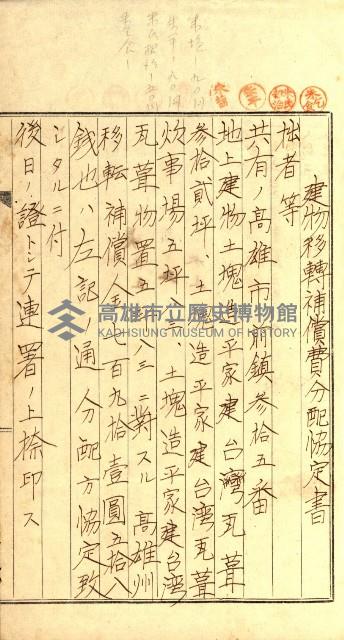 建物移轉補償費分配協定書
拙者等
共有ノ高雄市前鎮参拾五番
地上建物土塊造平家建台湾瓦葺
参拾貳坪、土塊造平家建台湾瓦葺
炊事場五坪 、土塊造平家建台湾
瓦葺物置五 八三ニ對スル高雄州
移転補償金七百九拾壹圓五拾八
銭也ハ左記ノ通分配方協定致
シタルニ付
後日ノ證トシテ連署ノ上捺印ス
高雄市立歷史博物館
KAOHSIUNG MUSEUM OF HISTORY